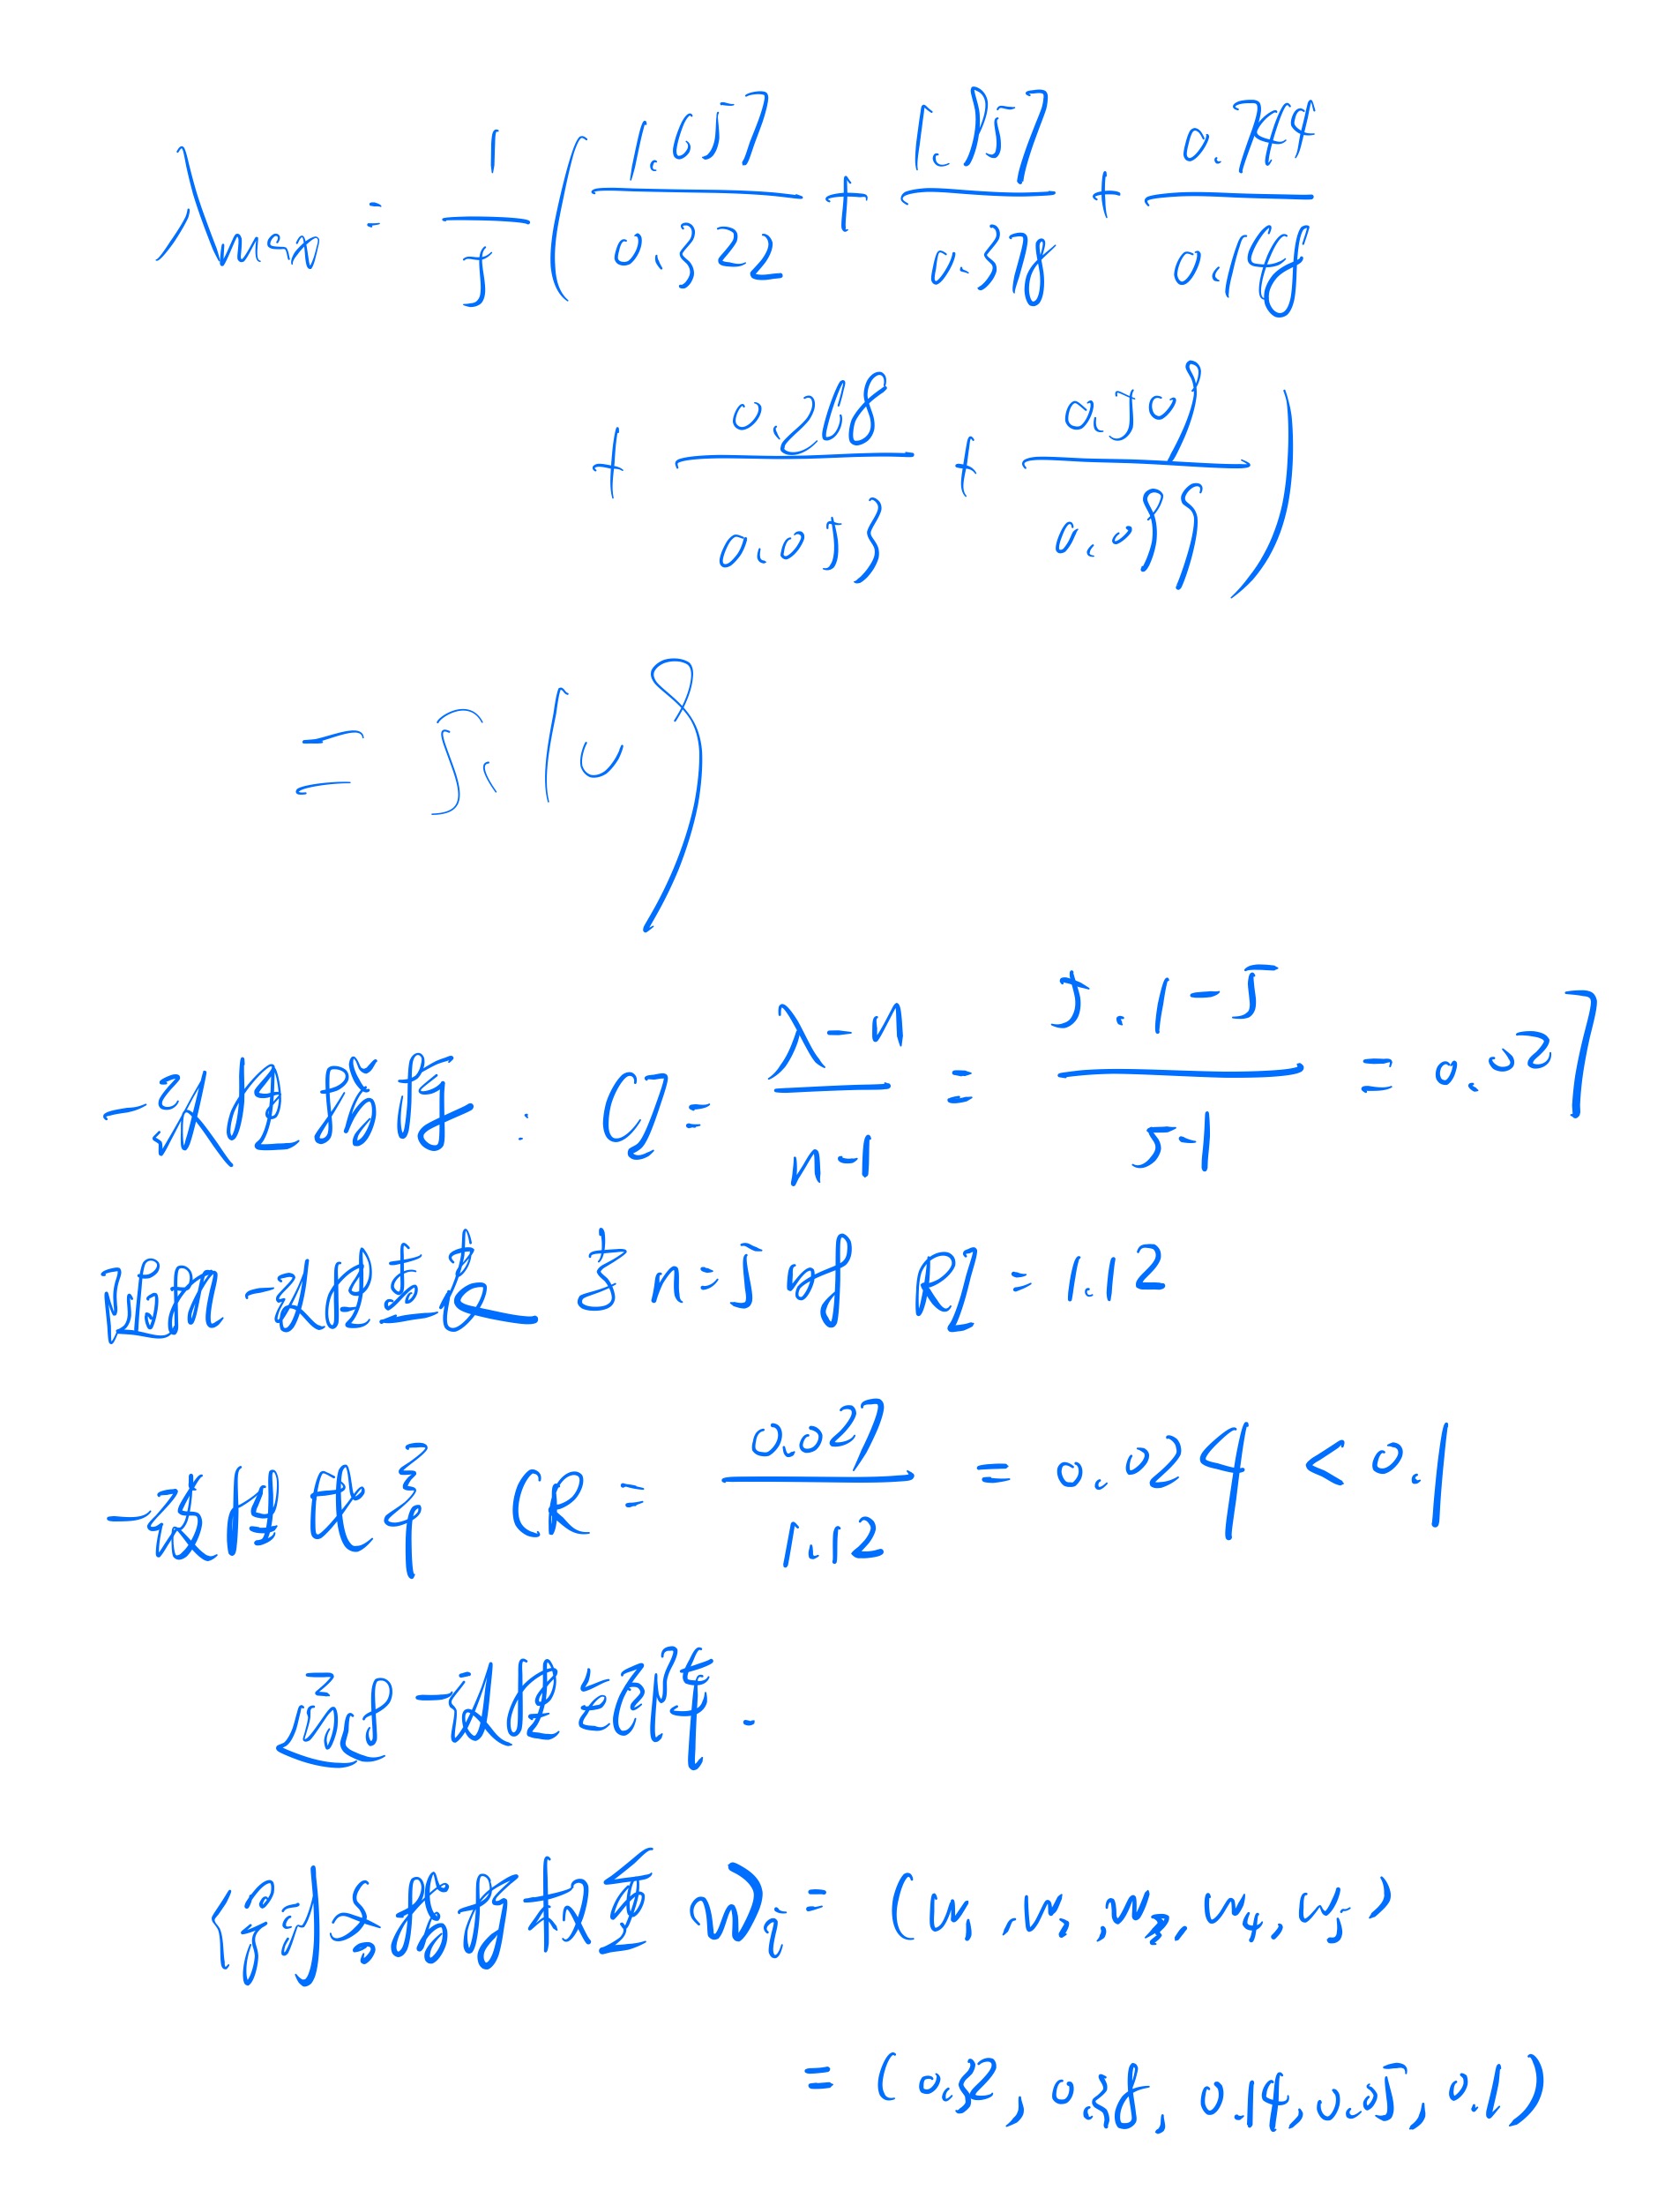 λmax = 1/5 ( 1.657/0.322 + 1.957/0.38 + 0.744/0.148
+ 0.268/0.053 + 0.509/0.099 )
= 5.109
一致性指标: CI = λ-n / n-1 = 5.1-5 / 5-1 = 0.027
随机一致性 n=5时 RI = 1.12
一致性比率 CR = 0.027/1.12 = 0.024 < 0.1
通过一致性检验.
得到各指标权重 Wi = (W1, W2, W3, W4, W5)
= (0.32, 0.38, 0.14, 0.05, 0.1)